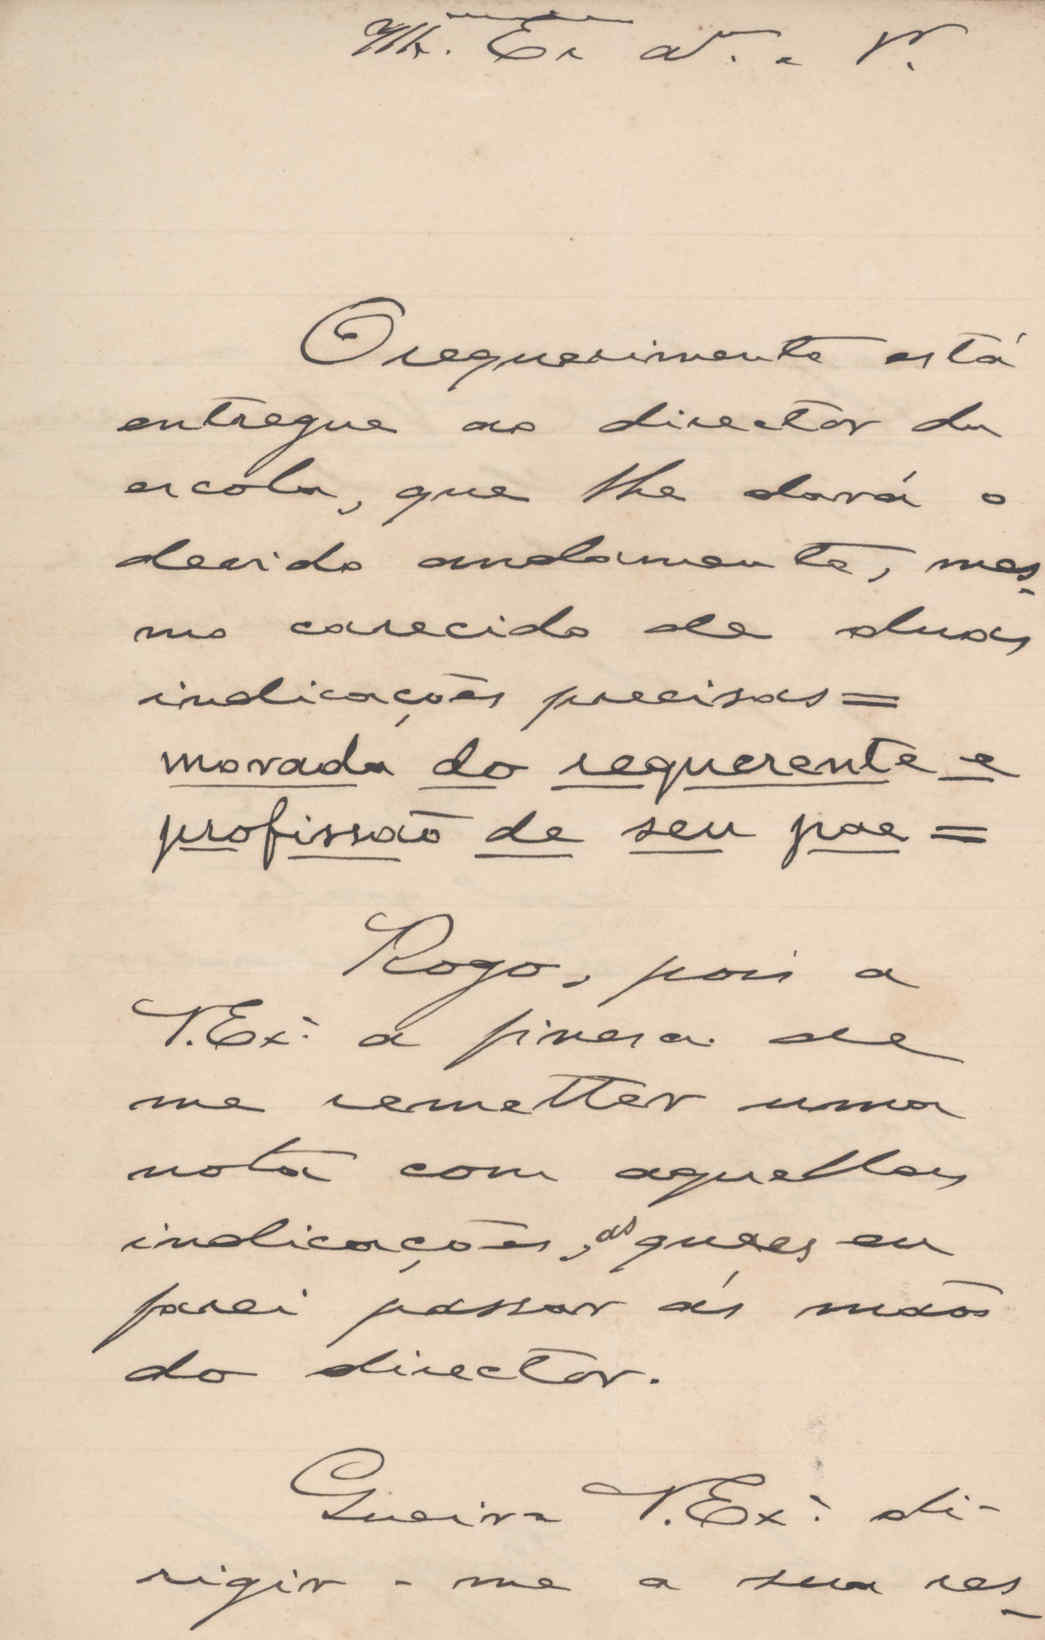 O requerimento está
entregue ao director da
escola, que lhe dará o
devido andamento, mes-
mo carecido de duas
indicações precisas =
morada do requerente e
profissão de seu pae =
Rogo, pois a
V. Exª a fineza de
me remetter uma
nota com aquellas
indicações, as quaes eu
farei passar ás mãos
do director.
Queira V. Exª di-
rigir-me a sua res-